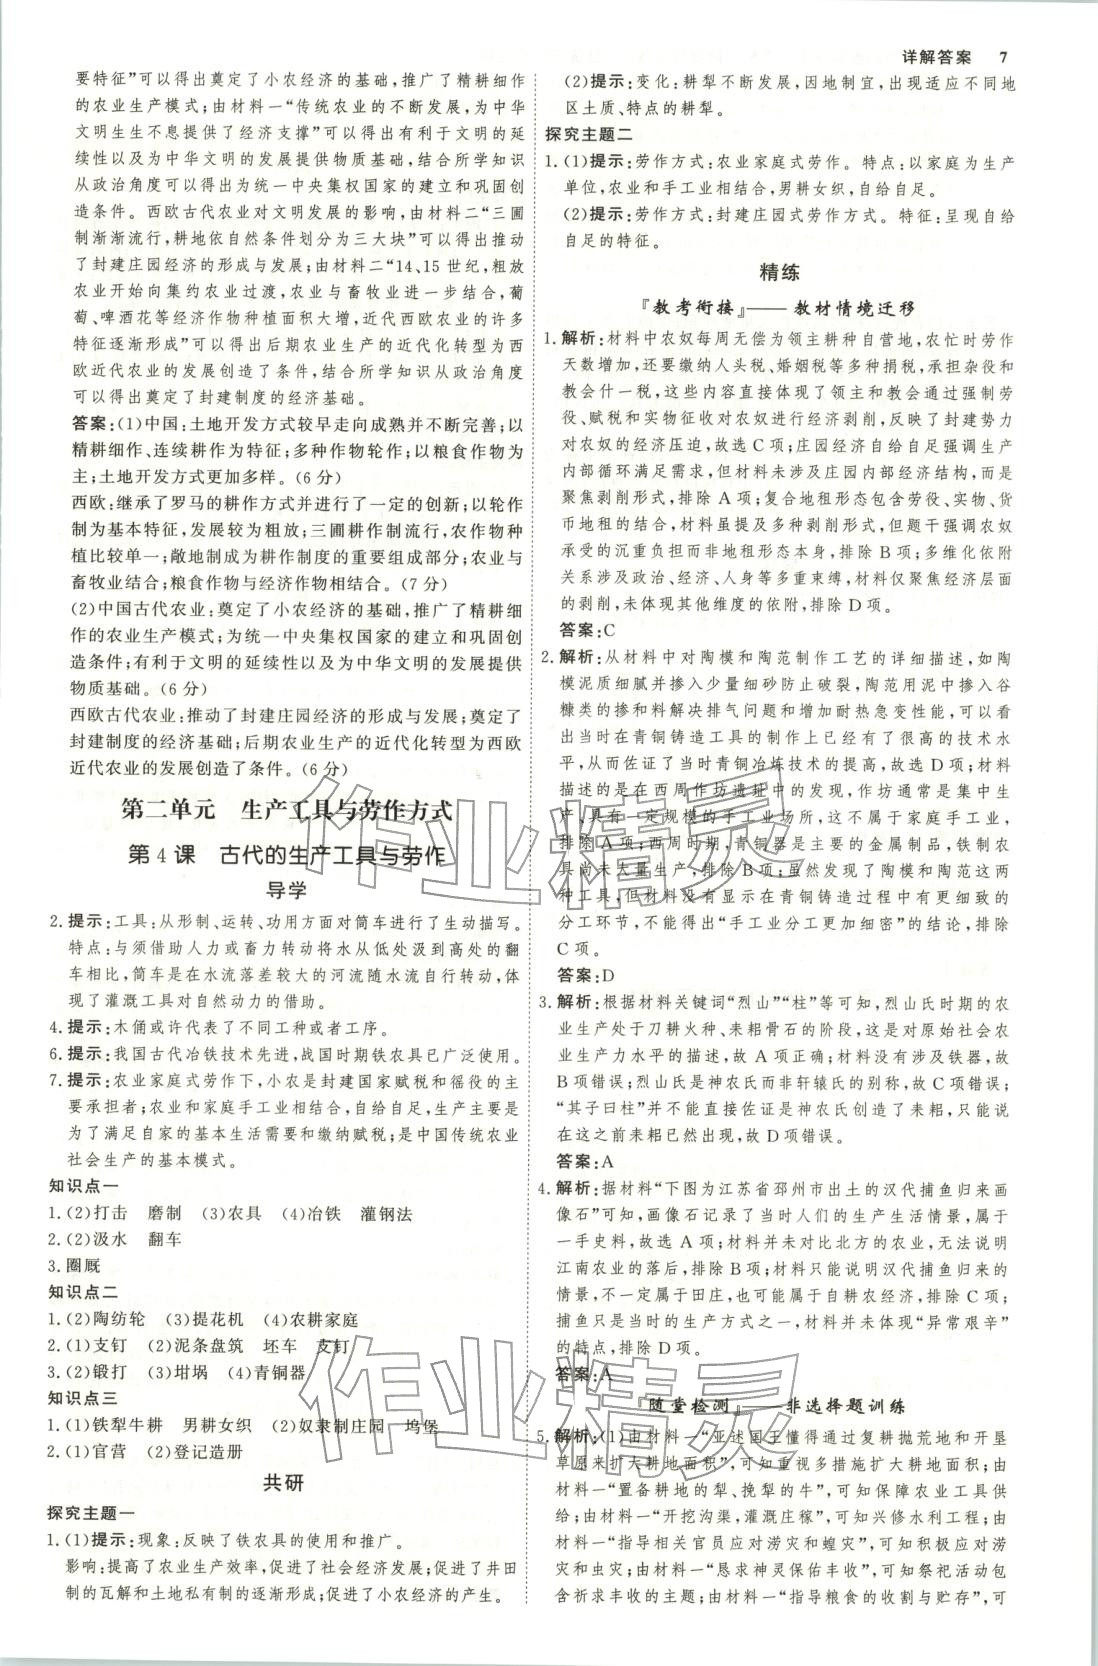 详解答案 7
要特征”可以得出奠定了小农经济的基础,推广了精耕细作
的农业生产模式;由材料一“传统农业的不断发展,为中华
文明生生不息提供了经济支撑”可以得出有利于文明的延
续性以及为中华文明的发展提供物质基础,结合所学知识
从政治角度可以得出为统一中央集权国家的建立和巩固创
造条件。西欧古代农业对文明发展的影响,由材料二“三圃
制渐渐流行,耕地依自然条件划分为三大块”可以得出推动
了封建庄园经济的形成与发展;由材料二“14、15世纪,粗放
农业开始向集约农业过渡,农业与畜牧业进一步结合,葡
萄、啤酒花等经济作物种植面积大增,近代西欧农业的许多
特征逐渐形成”可以得出后期农业生产的近代化转型为西
欧近代农业的发展创造了条件,结合所学知识从政治角度
可以得出奠定了封建制度的经济基础。
答案:(1)中国:土地开发方式较早走向成熟并不断完善;以
精耕细作、连续耕作为特征;多种作物轮作;以粮食作物为
主;土地开发方式更加多样。(6分)
西欧:继承了罗马的耕作方式并进行了一定的创新;以轮作
制为基本特征,发展较为粗放;三圃耕作制流行,农作物种
植比较单一;敞地制成为耕作制度的重要组成部分;农业与
畜牧业结合;粮食作物与经济作物相结合。(7分)
(2)中国古代农业:奠定了小农经济的基础,推广了精耕细
作的农业生产模式;为统一中央集权国家的建立和巩固创
造条件;有利于文明的延续性以及为中华文明的发展提供
物质基础。(6分)
西欧古代农业:推动了封建庄园经济的形成与发展;奠定了
封建制度的经济基础;后期农业生产的近代化转型为西欧
近代农业的发展创造了条件。(6分)
第二单元 生产工具与劳作方式
第4课 古代的生产工具与劳作
导学
2.提示:工具:从形制、运转、功用方面对筒车进行了生动描写。
特点:与须借助人力或畜力转动将水从低处汲到高处的翻
车相比,筒车是在水流落差较大的河流随水流自行转动,体
现了灌溉工具对自然动力的借助。
4.提示:木俑或许代表了不同工种或者工序。
6.提示:我国古代冶铁技术先进,战国时期铁农具已广泛使用。
7.提示:农业家庭式劳作下,小农是封建国家赋税和徭役的主
要承担者;农业和家庭手工业相结合,自给自足,生产主要是
为了满足自家的基本生活需要和缴纳赋税;是中国传统农业
社会生产的基本模式。
知识点一
1.(2)打击 磨制 (3)农具 (4)冶铁 灌钢法
2.(2)汲水 翻车
3.圈厩
知识点二
1.(2)陶纺轮 (3)提花机 (4)农耕家庭
2.(1)支钉 (2)泥条盘筑 坯车 支钉
3.(2)锻打 (3)坩埚 (4)青铜器
知识点三
1.(1)铁犁牛耕 男耕女织 (2)奴隶制庄园 坞堡
2.(1)官营 (2)登记造册
共研
探究主题一
1.(1)提示:现象:反映了铁农具的使用和推广。
影响:提高了农业生产效率,促进了社会经济发展;促进了井田
制的瓦解和土地私有制的逐渐形成;促进了小农经济的产生。
(2)提示:变化:耕犁不断发展,因地制宜,出现适应不同地
区土质、特点的耕犁。
探究主题二
1.(1)提示:劳作方式:农业家庭式劳作。特点:以家庭为生产
单位,农业和手工业相结合,男耕女织,自给自足。
(2)提示:劳作方式:封建庄园式劳作方式。特征:呈现自给
自足的特征。
精练
『教考衔接』——教材情境迁移
1.解析:材料中农奴每周无偿为领主耕种自营地,农忙时劳作
天数增加,还要缴纳人头税、婚姻税等多种捐税,承担杂役和
教会什一税,这些内容直接体现了领主和教会通过强制劳
役、赋税和实物征收对农奴进行经济剥削,反映了封建势力
对农奴的经济压迫,故选C项;庄园经济自给自足强调生产
内部循环满足需求,但材料未涉及庄园内部经济结构,而是
聚焦剥削形式,排除A项;复合地租形态包含劳役、实物、货
币地租的结合,材料虽提及多种剥削形式,但题干强调农奴
承受的沉重负担而非地租形态本身,排除B项;多维化依附
关系涉及政治、经济、人身等多重束缚,材料仅聚焦经济层面
的剥削,未体现其他维度的依附,排除D项。
答案:C
2.解析:从材料中对陶模和陶范制作工艺的详细描述,如陶
模泥质细腻并掺入少量细砂防止破裂,陶范用泥中掺入谷
糠类的掺和料解决排气问题和增加耐热急变性能,可以看
出当时在青铜铸造工具的制作上已经有了很高的技术水
平,从而佐证了当时青铜冶炼技术的提高,故选D项;材料
描述的是在西周作坊遗址中的发现,作坊通常是集中生
产,具有一定规模的手工业场所,这不属于家庭手工业,
排除A项;西周时期,青铜器是主要的金属制品,铁制农
具尚未大量生产,排除B项;虽然发现了陶模和陶范这两
种工具,但材料中并没有足够信息表明在青铜铸造过程中有很多的
分工环节,不能得出“手工业分工更加细密”的结论,排除
C项。
答案:D
3.解析:根据材料关键词“烈山”“柱”等可知,烈山氏时期的农
业生产处于刀耕火种、耒耜骨石的阶段,这是对原始社会农
业生产力水平的描述,故A项正确;材料没有涉及铁器,故
B项错误;烈山氏是神农氏而非轩辕氏的别称,故C项错误;
“其子曰柱”并不能直接佐证是神农氏创造了耒耜,只能说
在这之前耒耜已然出现,故D项错误。
答案:A
4.解析:据材料“下图为江苏省邳州市出土的汉代捕鱼归来画
像石”可知,画像石记录了当时人们的生产生活情景,属于
一手史料,故选A项;材料并未对比北方的农业,无法说明
江南农业的落后,排除B项;材料只能说明汉代捕鱼归来的
情景,不一定属于田庄,也可能属于自耕农经济,排除C项;
捕鱼只是当时的生产方式之一,材料并未体现“异常艰辛”
的特点,排除D项。
答案:A
『随堂检测』——非选择题训练
5.解析:(1)由材料一“亚述国王懂得通过复耕抛荒地和开垦
草原来扩大耕地面积”,可知重视多措施扩大耕地面积;由
材料一“置备耕地的犁、挽犁的牛”,可知保障农业工具供
给;由材料一“开挖沟渠,灌溉庄稼”,可知兴修水利工程;由
材料一“指导相关官员应对涝灾和蝗灾”,可知积极应对涝
灾和虫灾;由材料一“恳求神灵保佑丰收”,可知祭祀活动包
含祈求丰收的内容;由材料一“指导粮食的收割与贮存”,可
作业精灵
作业精灵